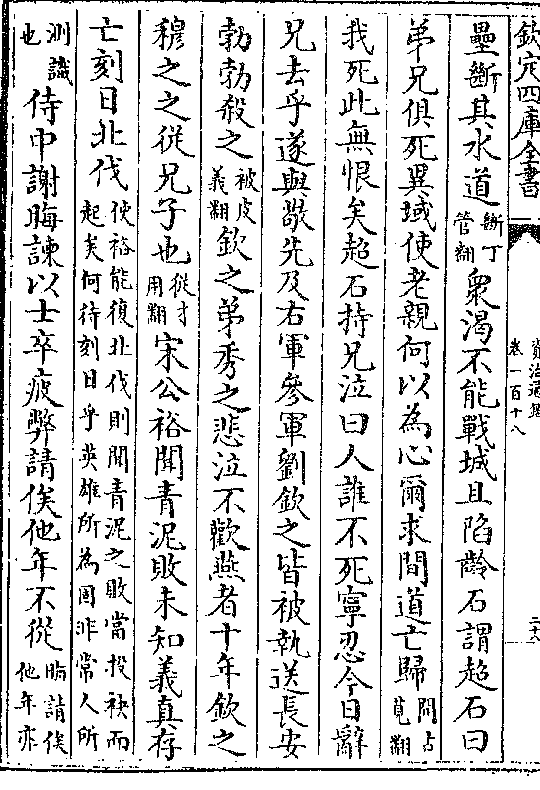 欽定四庫全書
資治通鑑
卷一百十八
二十六
壘斷其水道斷丁管翻衆渴不能戰城且陷齡石謂超石曰
弟兄俱死異域使老親何以為心爾求間道亡歸間古莧翻
我死此無恨矣超石持兄泣曰人誰不死寧忍今日辭
兄去乎遂與敬先及右軍參軍劉欽之皆被執送長安
勃勃殺之被皮義翻欽之弟秀之悲泣不歡燕者十年欽之
穆之之從兄子也從才用翻宋公裕聞青泥敗未知義真存
亡刻日北伐使裕能復北伐則聞青泥之敗當投袂而起矣何待刻日乎英雄所為固非常人所
測識也侍中謝晦諫以士卒疲弊請俟他年不從晦請俟他年亦